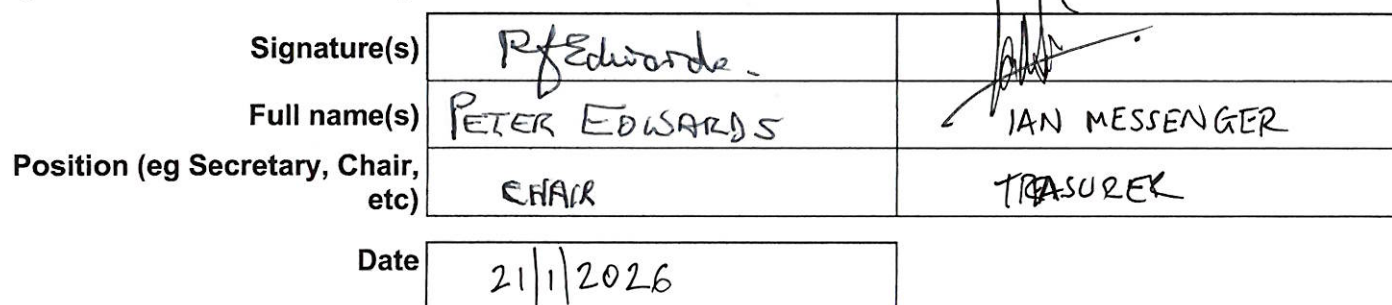 Signature(s) RfEdwards.
Full name(s) PETER EDWARDS IAN MESSENGER
Position (eg Secretary, Chair,
etc) CHAIR TRASURER
Date 21/1/2026